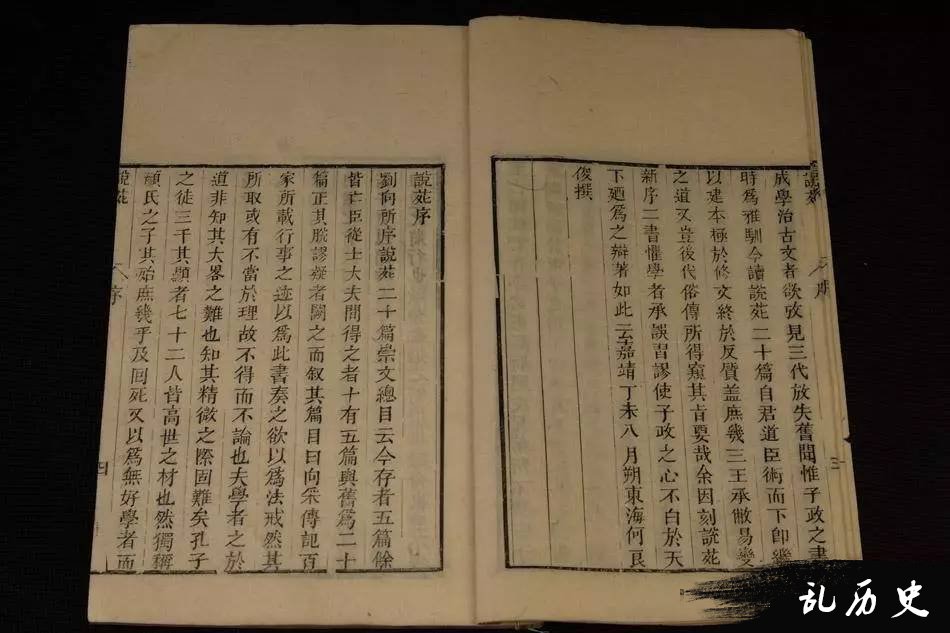 說苑
成學治古文者欲攷見三代放失舊聞惟子政之書
時爲雅馴今讀說苑二十篇自君道臣術而下卽繼
以建本極於修文終於反質盖庶幾三王承敝易變
之道又豈後代俗傳所得窺其肯要哉余因刻說苑
新序二書懼學者承誤習謬使子政之心不白於天
下廼爲之辯著如此云嘉靖丁未八月朔東海何良
俊撰
說苑序
劉向所序說苑二十篇崇文總目云今存者五篇餘
皆亡臣從士大夫間得之者十有五篇與舊爲二十
篇正其脫謬疑者闕之而叙其篇目曰向采傳記百
家所載行事之迹以爲此書奏之欲以爲法戒然其
所取或有不當於理故不得而不論也夫學者之於
道非知其大畧之難也知其精微之際固難矣孔子
之徒三千其顯者七十二人皆高世之材也然獨稱
顔氏之子其殆庶幾乎及回死又以爲無好學者而
說苑
序
四
乱历史